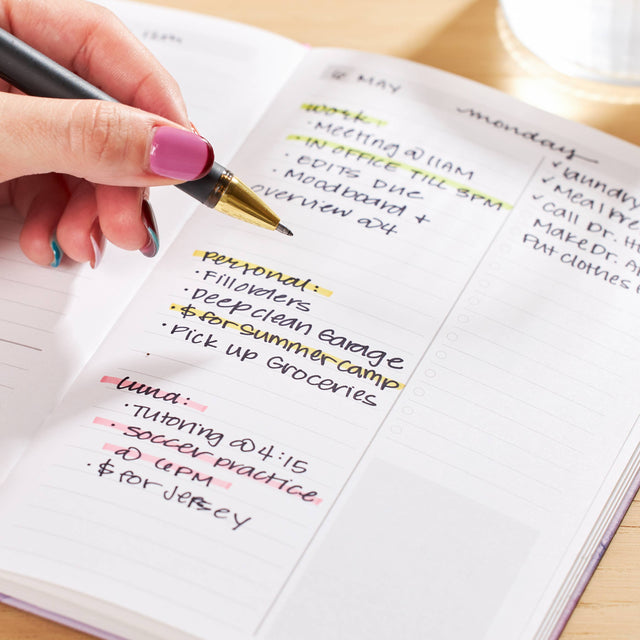 MAY
monday
work:
· Meeting @ 11AM
· IN OFFICE TILL 3PM
· EDITS DUE
· Moodboard +
overview @4
personal:
· Fill orders
· Deep clean Garage
· $ for summer camp
· Pick up Groceries
·
Luna:
· Tutoring @ 4:15
· soccer practice
@ 6PM
· $ for Jersey
✓ laundry
✓ Meal Pre
✓ Call Dr. H
Make Dr. A
Put clothes